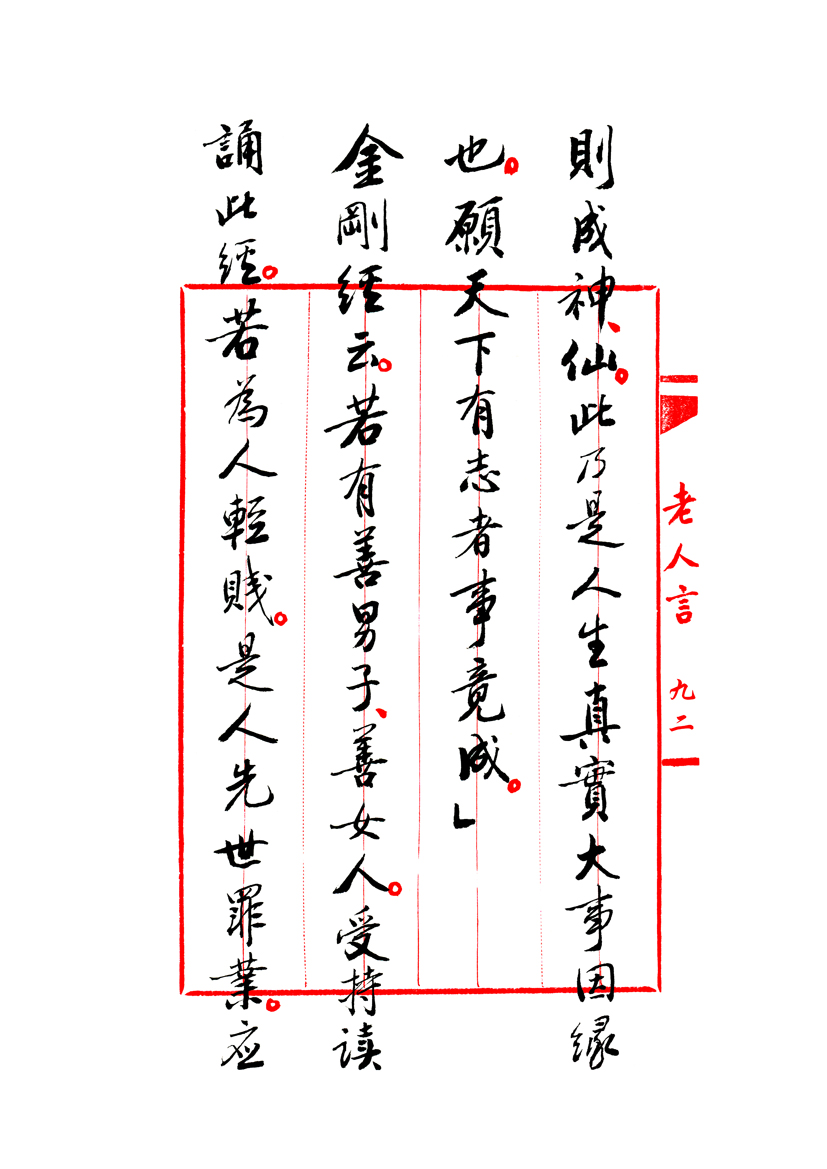 老人言 九二
則成神、仙。此乃是人生真實大事因缘
也。願天下有志者事竟成。」
金剛經云。若有善男子、善女人。受持读
誦此經。若為人輕賤。是人先世罪業。应